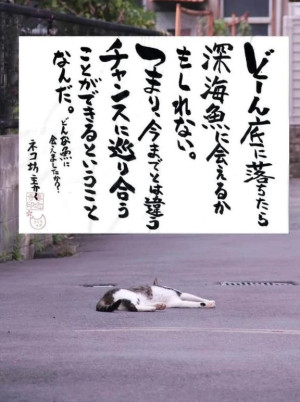 どーん底に落ちたら
深海魚に会えるか
もしれない。
つまり、今までとは違う
チャンスに巡り合う
ことができるということ
なんだ。
どんな魚に
会えましたか?